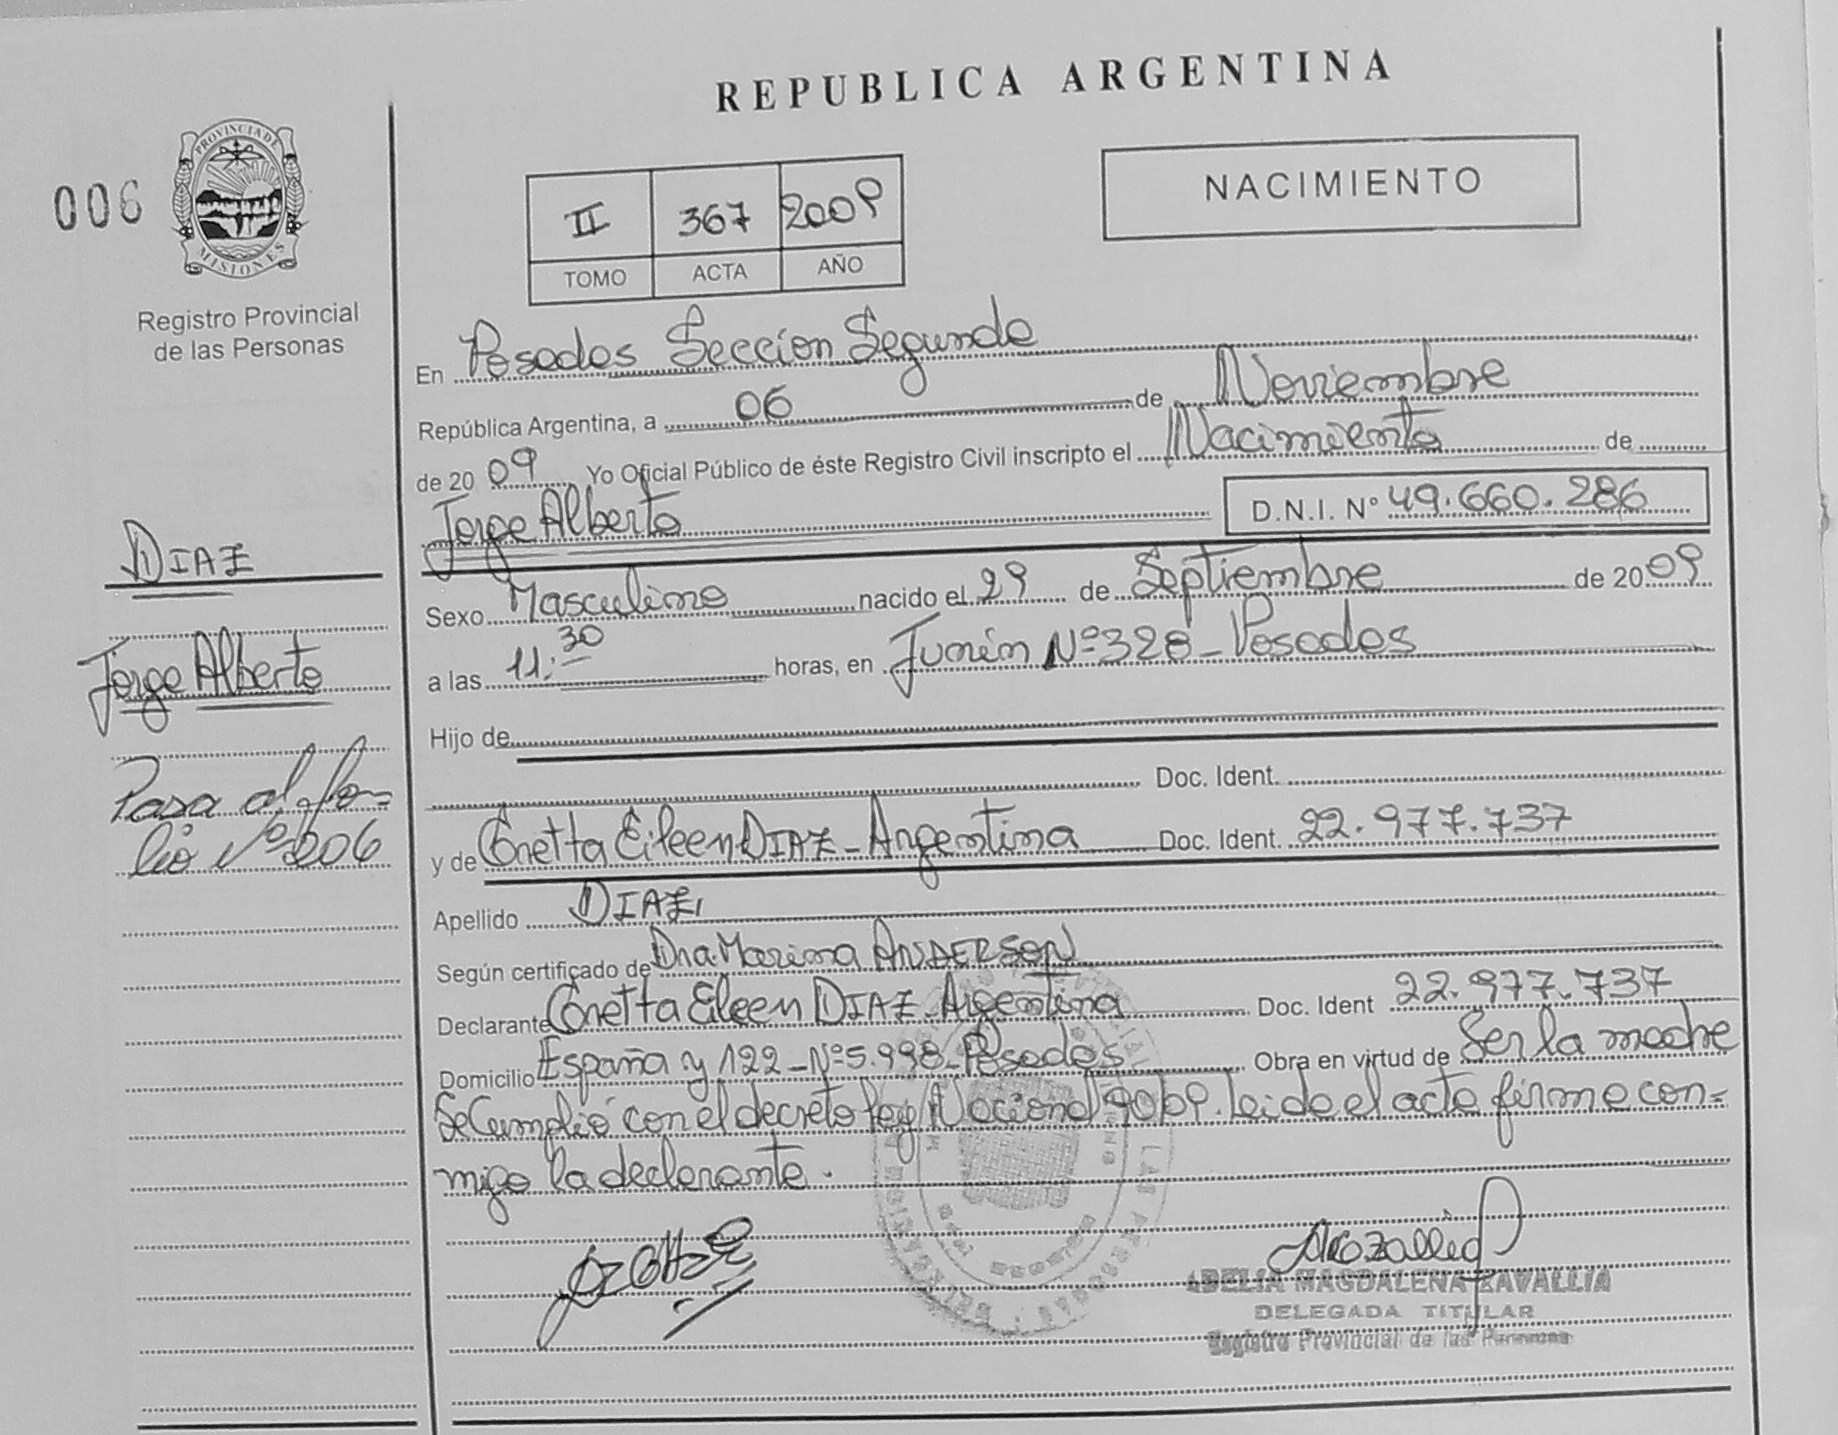 REPUBLICA ARGENTINA
006
PROVINCIA DE
MISIONES
Registro Provincial
de las Personas
II 367 2009
TOMO ACTA AÑO
NACIMIENTO
En Posadas Sección Segunda
República Argentina, a 06 de Noviembre
de 2009 Yo Oficial Público de éste Registro Civil inscripto el Nacimiento de
Jorge Alberto D.N.I. Nº 49.660.286
Sexo Masculino nacido el 29 de Septiembre de 2009
a las 11:30 horas, en Junín Nº 328 - Posadas
Hijo de
Doc. Ident.
y de Conetta Eileen DIAZ - Argentina Doc. Ident. 22.977.737
Apellido DIAZ
Según certificado de Dra. Marina ANDERSON
Declarante Conetta Eileen DIAZ - Argentina Doc. Ident 22.977.737
Domicilio España y 122 - Nº 5.998 - Posadas Obra en virtud de Ser la madre
Se Cumplió con el decreto Ley Nacional 90/09. Leída el acta firma con=
migo la declarante.
DIAZ
Jorge Alberto
Pasa al fo=
lio Nº 206
ADELIA MAGDALENA ZAVALLIA
DELEGADA TITULAR
Registro Provincial de las Personas